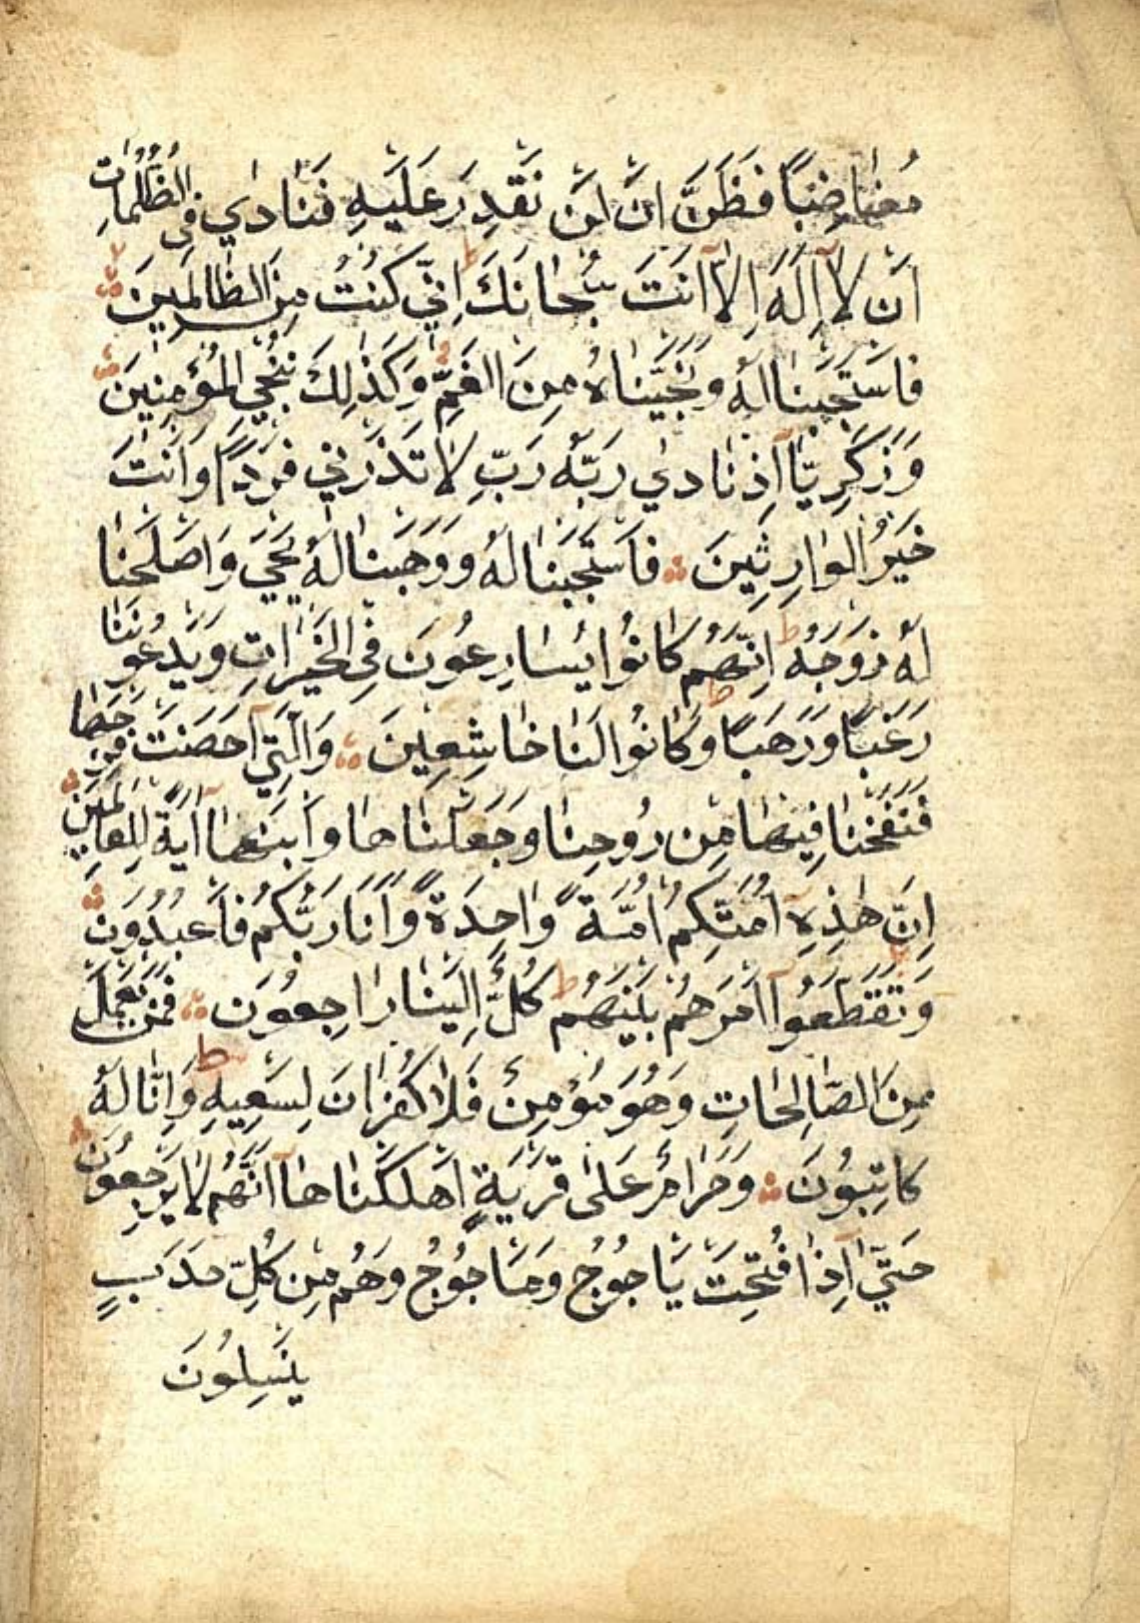 مُغَاضِبًا فَظَنَّ اَنْ لَنْ نَقْدِرَ عَلَيْهِ فَنَادٰي فِي الظُّلُمَاتِ
اَنْ لَآ اِلٰهَ اِلَّآ اَنْتَ سُبْحَانَكَ ط اِنّي كُنْتُ مِنَ الظَّالِمينَ
فَاسْتَجَبْنَا لَهُ وَنَجَّيْنَاهُ مِنَ الْغَمِّ وَكَذٰلِكَ نُنْجِي الْمُؤْمِنينَ
وَزَكَرِيَّآ اِذْ نَادٰي رَبَّهُ رَبِّ لَا تَذَرْني فَرْدًا وَاَنْتَ
خَيْرُ الْوَارِثِينَ فَاسْتَجَبْنَا لَهُ وَوَهَبْنَا لَهُ يَحْيَ وَاَصْلَحْنَا
لَهُ زَوْجَهُ ط اِنَّهُمْ كَانُوا يُسَارِعُونَ فِي الْخَيْرَاتِ وَيَدْعُونَنَا
رَغَبًا وَرَهَبًا ط وَكَانُوا لَنَا خَاشِعِينَ وَالَّتِيٓ اَحْصَنَتْ فَرْجَهَا
فَنَفَخْنَا فِيهَا مِنْ رُوحِنَا وَجَعَلْنَاهَا وَابْنَهَآ اٰيَةً لِلْعَالَمينَ
اِنَّ هٰذِهٖٓ اُمَّتُكُمْ اُمَّةً وَاحِدَةً وَاَنَا رَبُّكُمْ فَاعْبُدُونِ
وَتَقَطَّعُوٓا اَمْرَهُمْ بَيْنَهُمْ ط كُلٌّ اِلَيْنَا رَاجِعُونَ فَمَنْ يَعْمَلْ
مِنَ الصَّالِحَاتِ وَهُوَ مُؤْمِنٌ فَلَا كُفْرَانَ لِسَعْيِهِ ط وَاِنَّا لَهُ
كَاتِبُونَ وَحَرَامٌ عَلٰى قَرْيَةٍ اَهْلَكْنَاهَآ اَنَّهُمْ لَا يَرْجِعُونَ
حَتّٰيٓ اِذَا فُتِحَتْ يَاجُوجُ وَمَاجُوجُ وَهُمْ مِنْ كُلِّ حَدَبٍ
يَنْسِلُونَ